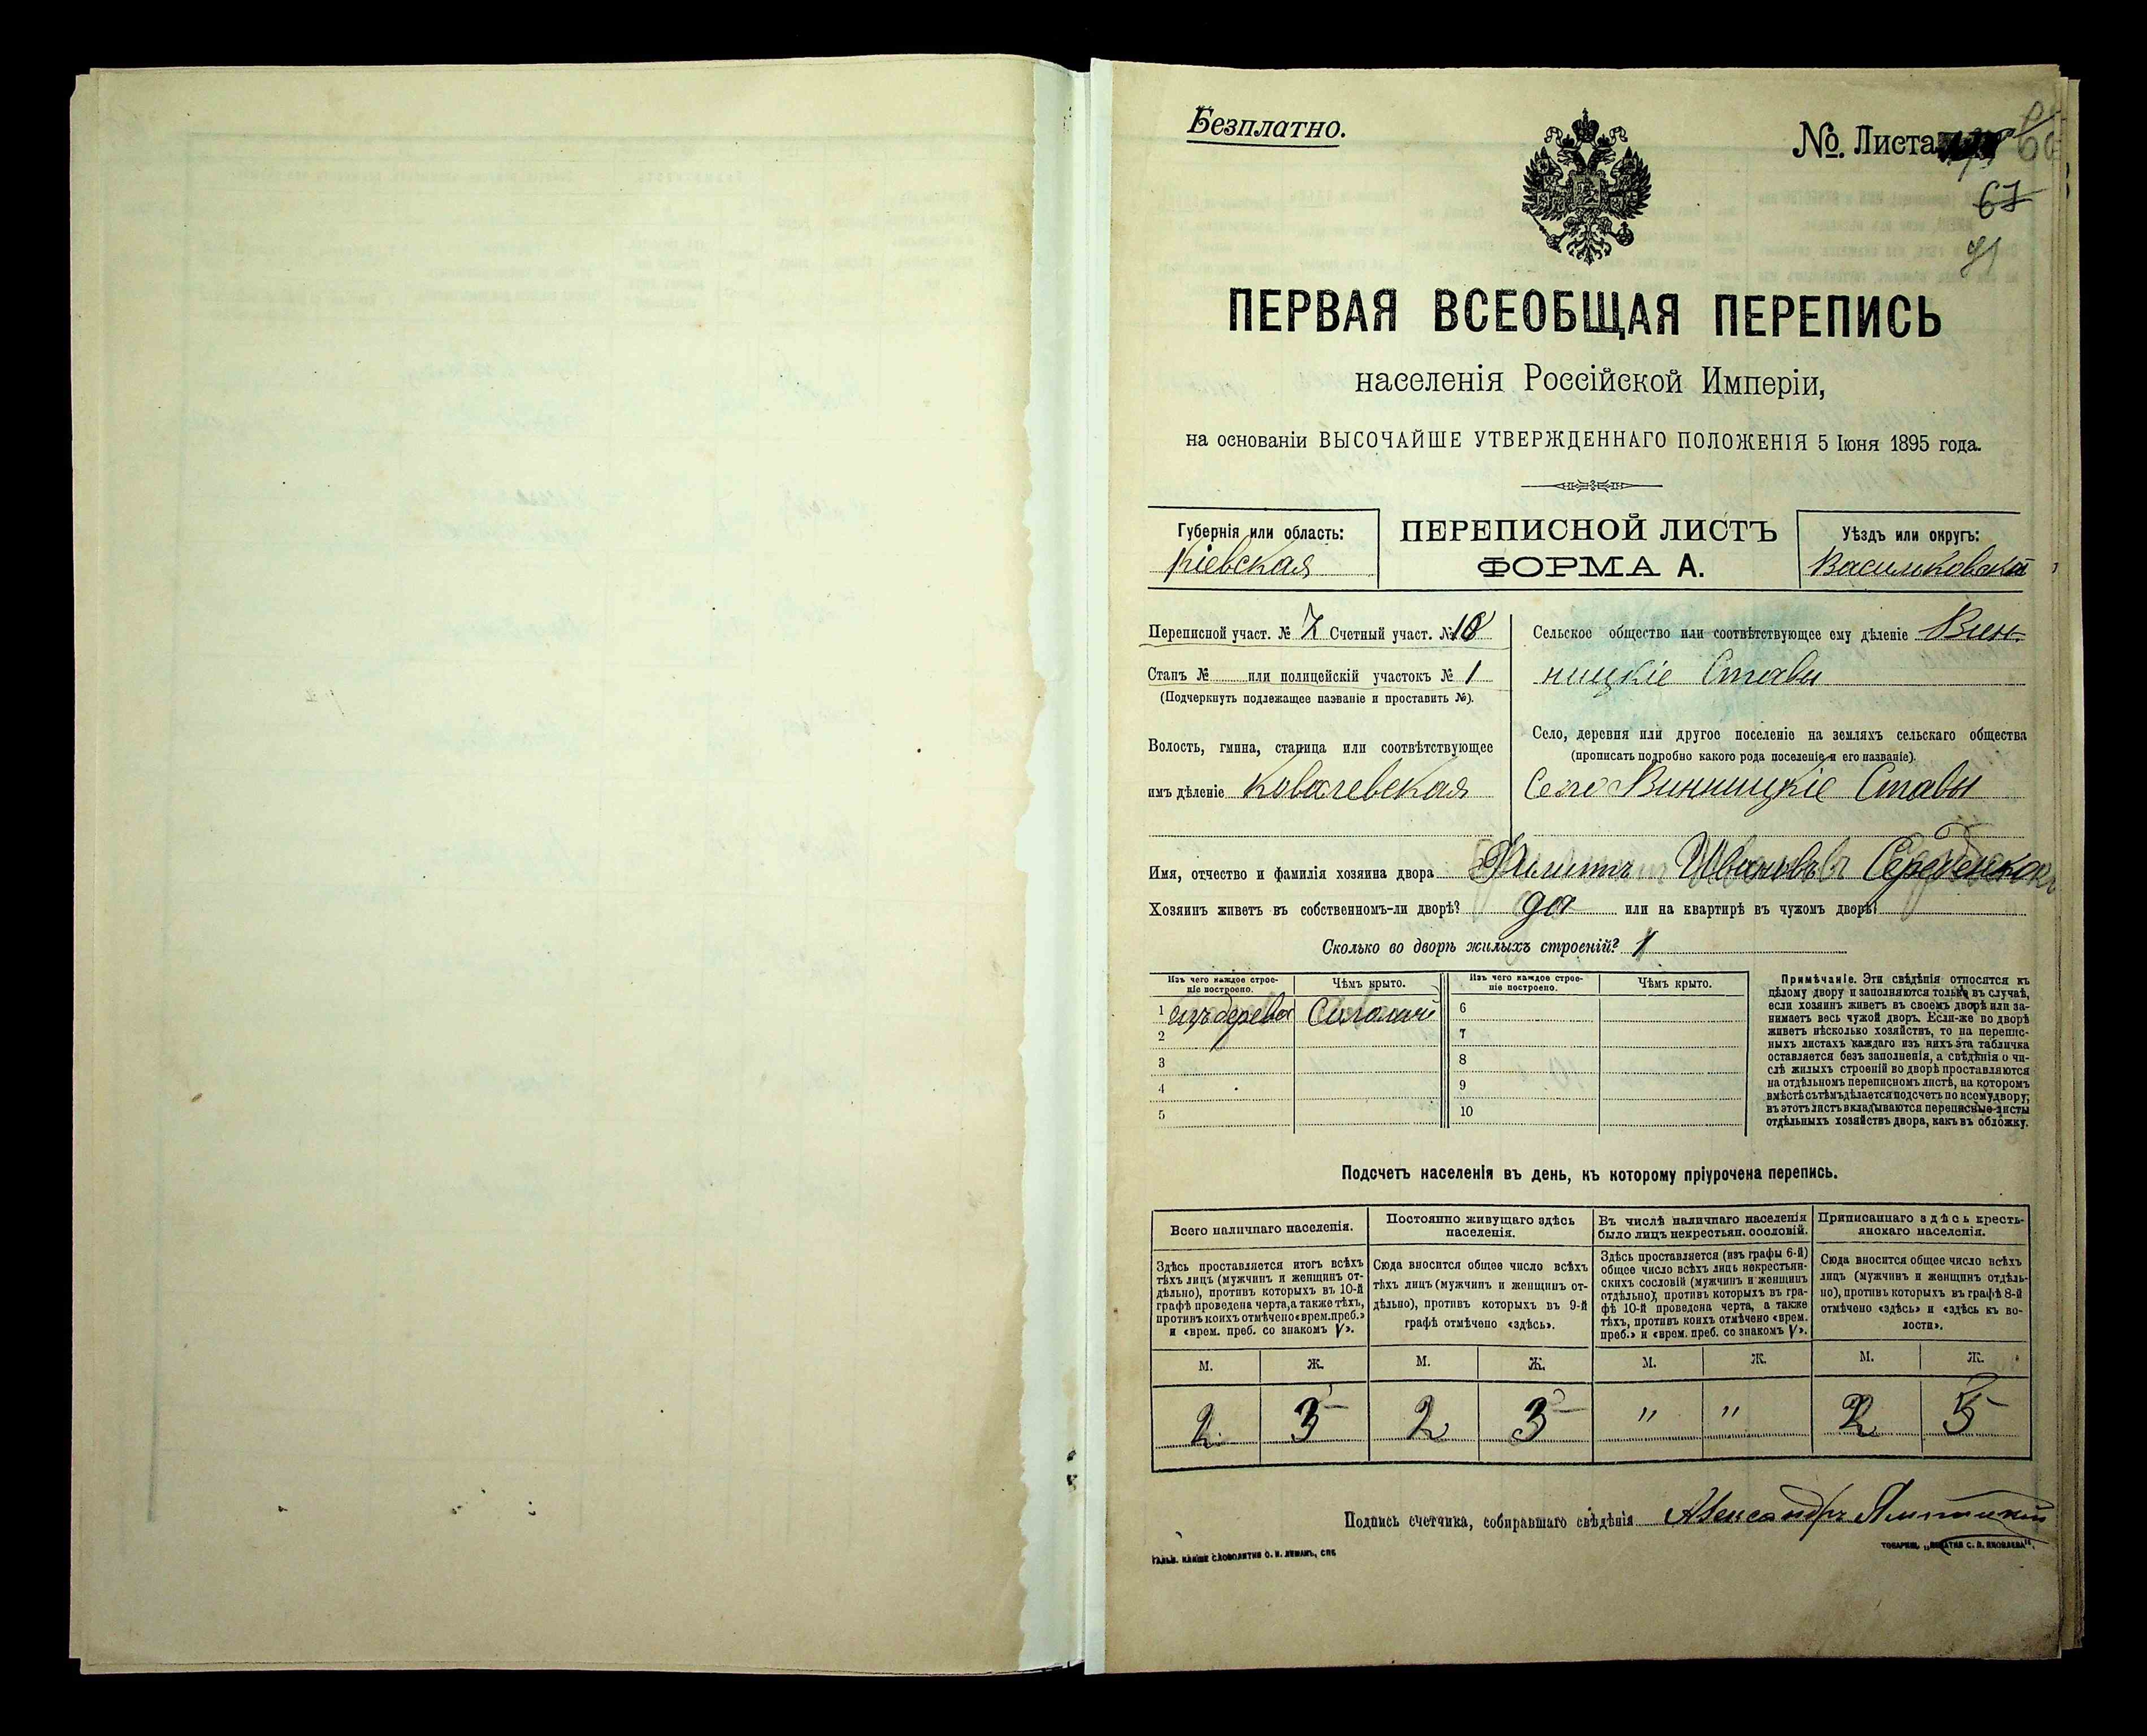 Безплатно.
№ Листа
67
ПЕРВАЯ ВСЕОБЩАЯ ПЕРЕПИСЬ
населенія Россійской Имперіи,
на основаніи ВЫСОЧАЙШЕ УТВЕРЖДЕННАГО ПОЛОЖЕНІЯ 5 Іюня 1895 года.
Губернія или область:
Кіевская
ПЕРЕПИСНОЙ ЛИСТЪ
ФОРМА А.
Уѣздъ или округъ:
Васильковскій
Переписной участ. № 7 Счетный участ. № 18
Станъ № или полицейскій участокъ № 1
(Подчеркнуть подлежащее названіе и проставить №).
Волость, гмина, станица или соотвѣтствующее
имъ дѣленіе Ковалевская
Сельское общество или соотвѣтствующее ему дѣленіе Вин-
ницкіе Ставы
Село, деревня или другое поселеніе на земляхъ сельскаго общества
(прописать подробно какого рода поселеніе и его названіе).
Село Винницкіе Ставы
Имя, отчество и фамилія хозяина двора Филиппъ Ивановъ
Хозяинъ живетъ въ собственномъ-ли дворѣ? да или на квартирѣ въ чужомъ дворѣ?
Сколько во дворѣ жилыхъ строеній? 1
Изъ чего каждое строе-
ніе построено.
Чѣмъ крыто.
Изъ чего каждое строе-
ніе построено.
Чѣмъ крыто.
1 изъ дерева Соломой 6
2 7
3 8
4 9
5 10
Примѣчаніе. Эти свѣдѣнія относятся къ
цѣлому двору и заполняются только въ случаѣ,
если хозяинъ живетъ въ своемъ дворѣ или за-
нимаетъ весь чужой дворъ. Если-же во дворѣ
живетъ нѣсколько хозяйствъ, то на перепис-
ныхъ листахъ каждаго изъ нихъ эта табличка
оставляется безъ заполненія, а свѣдѣнія о чи-
слѣ жилыхъ строеній во дворѣ проставляются
на отдѣльномъ переписномъ листѣ, на которомъ
вмѣстѣ съ тѣмъ дѣлается подсчетъ по всему двору;
въ этотъ листъ вкладываются переписные листы
отдѣльныхъ хозяйствъ двора, какъ въ обложку.
Подсчетъ населенія въ день, къ которому пріурочена перепись.
Всего наличнаго населенія.
Здѣсь проставляется итогъ всѣхъ
тѣхъ лицъ (мужчинъ и женщинъ от-
дѣльно), противъ которыхъ въ 10-й
графѣ проведена черта, а также тѣхъ,
противъ коихъ отмѣчено «врем. преб.»
и «врем. преб. со знакомъ V».
Постоянно живущаго здѣсь
населенія.
Сюда вносится общее число всѣхъ
тѣхъ лицъ (мужчинъ и женщинъ от-
дѣльно), противъ которыхъ въ 9-й
графѣ отмѣчено «здѣсь».
Въ числѣ наличнаго населенія
было лицъ некрестьян. сословій.
Здѣсь проставляется (изъ графы 6-й)
общее число всѣхъ лицъ некрестьян-
скихъ сословій (мужчинъ и женщинъ
отдѣльно), противъ которыхъ въ гра-
фѣ 10-й проведена черта, а также
тѣхъ, противъ коихъ отмѣчено «врем.
преб.» и «врем. преб. со знакомъ V».
Приписаннаго здѣсь кресть-
янскаго населенія.
Сюда вносится общее число всѣхъ
лицъ (мужчинъ и женщинъ отдѣль-
но), противъ которыхъ въ графѣ 8-й
отмѣчено «здѣсь» и «здѣсь къ во-
лости».
М. Ж. М. Ж. М. Ж. М. Ж.
2 3 2 3 " " 2 5
Подпись счетчика, собиравшаго свѣдѣнія Александръ
ГАЛЬВ. КЛИШЕ СЛОВОЛИТНИ О. И. ЛЕМАНЪ, СПБ
ТОВАРИЩ. „ПЕЧАТНЯ С. П. ЯКОВЛЕВА".